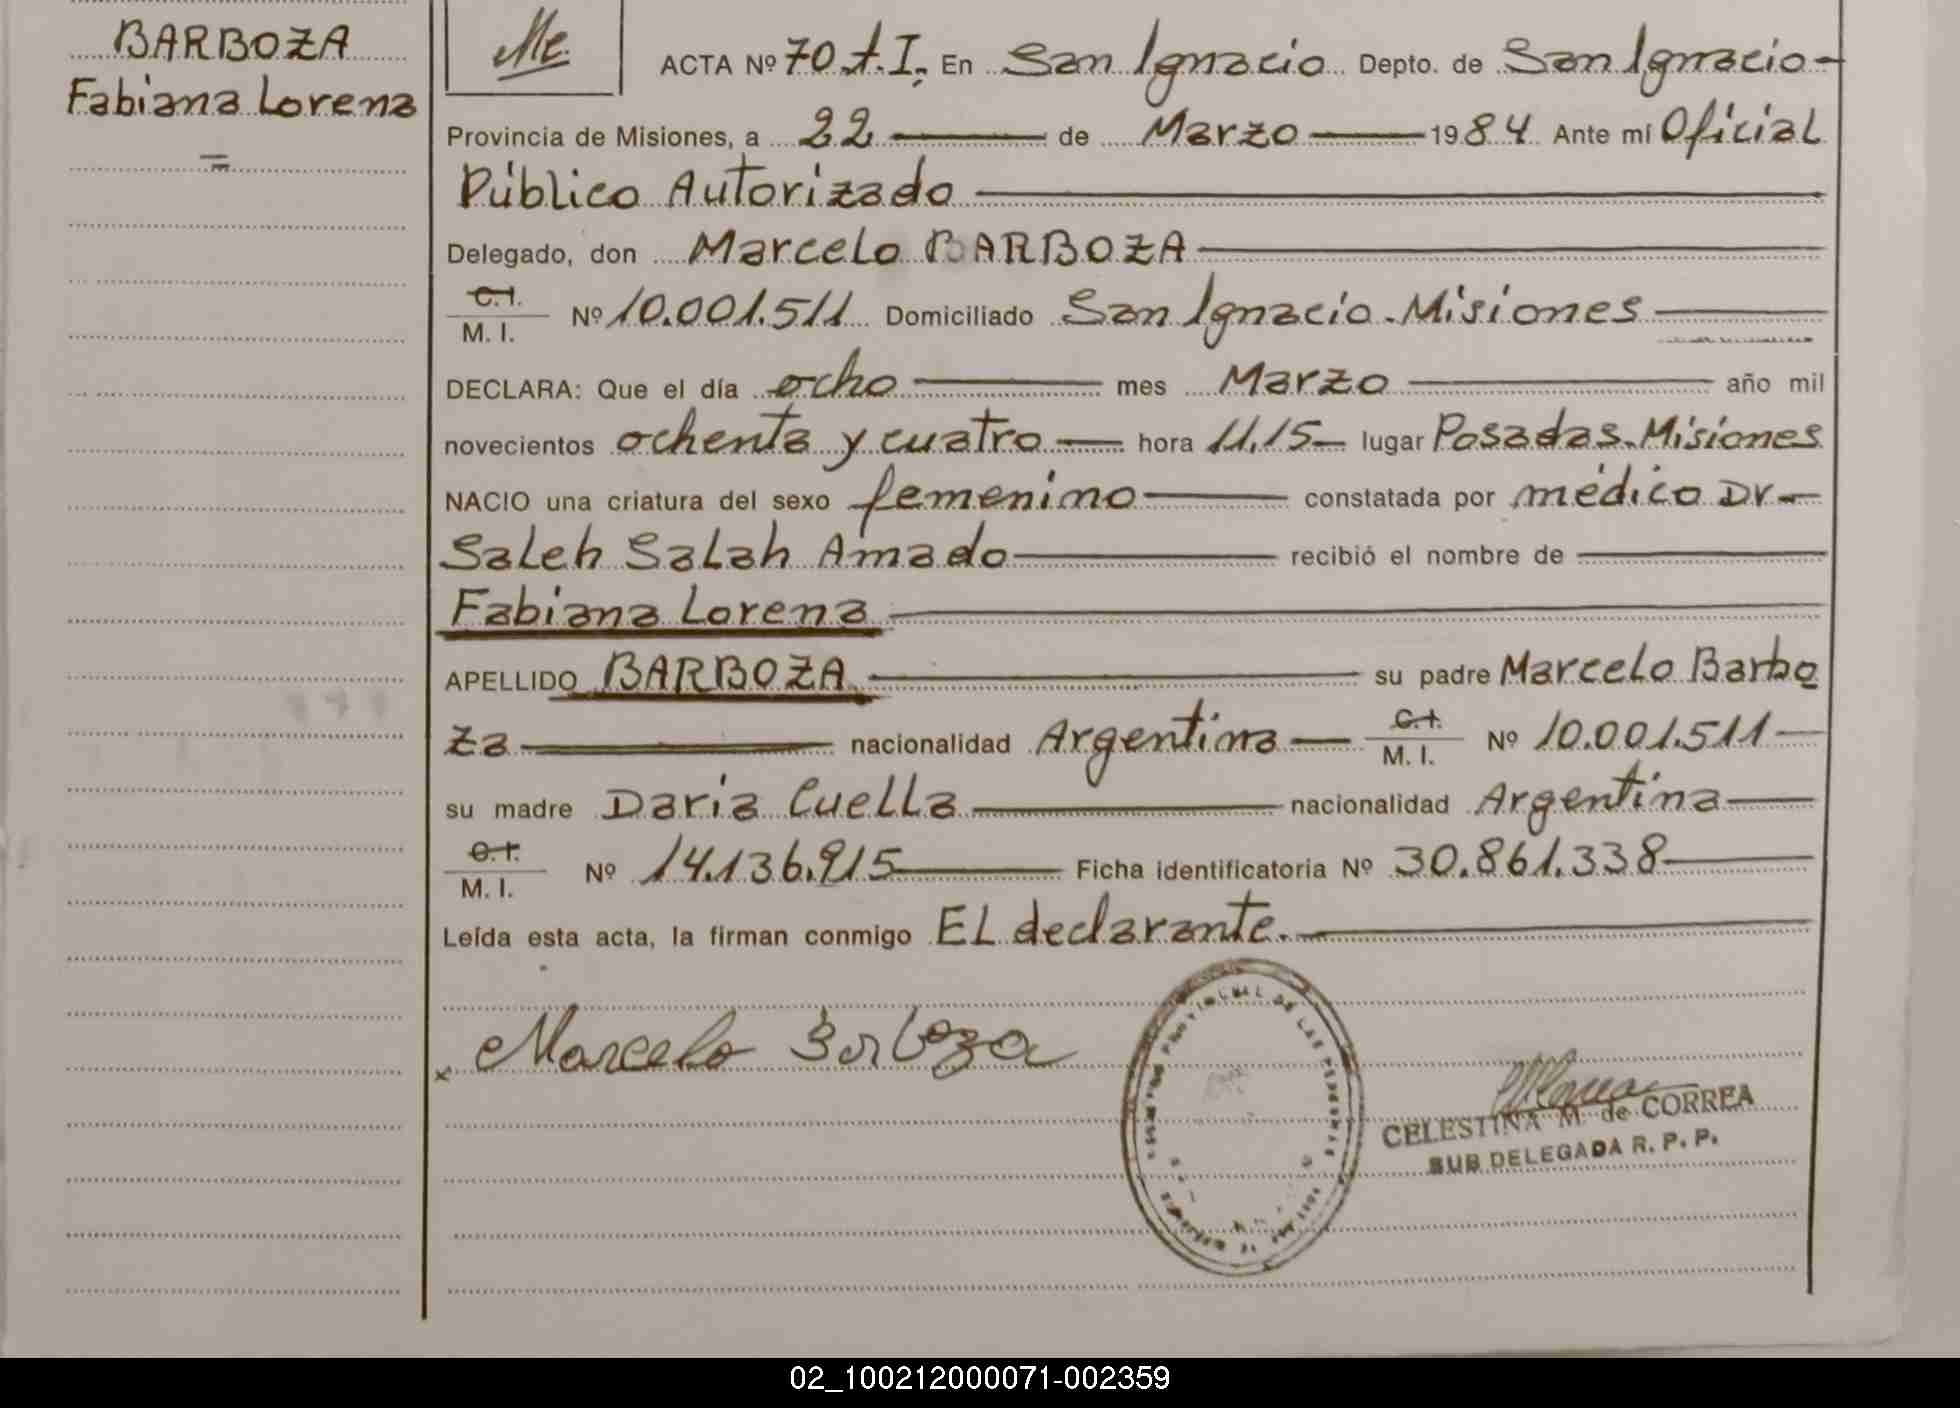 BARBOZA
Fabiana Lorena
=
Me.
ACTA Nº 70 t.I. En San Ignacio Depto. de San Ignacio-
Provincia de Misiones, a 22 de Marzo 1984 Ante mí Oficial
Público Autorizado
Delegado, don Marcelo BARBOZA
C.I.
M. I. Nº 10.001.511 Domiciliado San Ignacio-Misiones
DECLARA: Que el día ocho mes Marzo año mil
novecientos ochenta y cuatro hora 11.15 lugar Posadas-Misiones
NACIO una criatura del sexo femenino constatada por médico Dr-
Saleh Salah Amado recibió el nombre de
Fabiana Lorena
APELLIDO BARBOZA su padre Marcelo Barbo
za nacionalidad Argentina C.I.
M. I. Nº 10.001.511
su madre Daria Cuella nacionalidad Argentina
C.I.
M. I. Nº 14.136.915 Ficha identificatoria Nº 30.861.338
Leída esta acta, la firman conmigo EL declarante.
x Marcelo Barboza
PROVINCIAL DE LAS PERSONAS
CELESTINA M. de CORREA
SUB DELEGADA R. P. P.
02_100212000071-002359